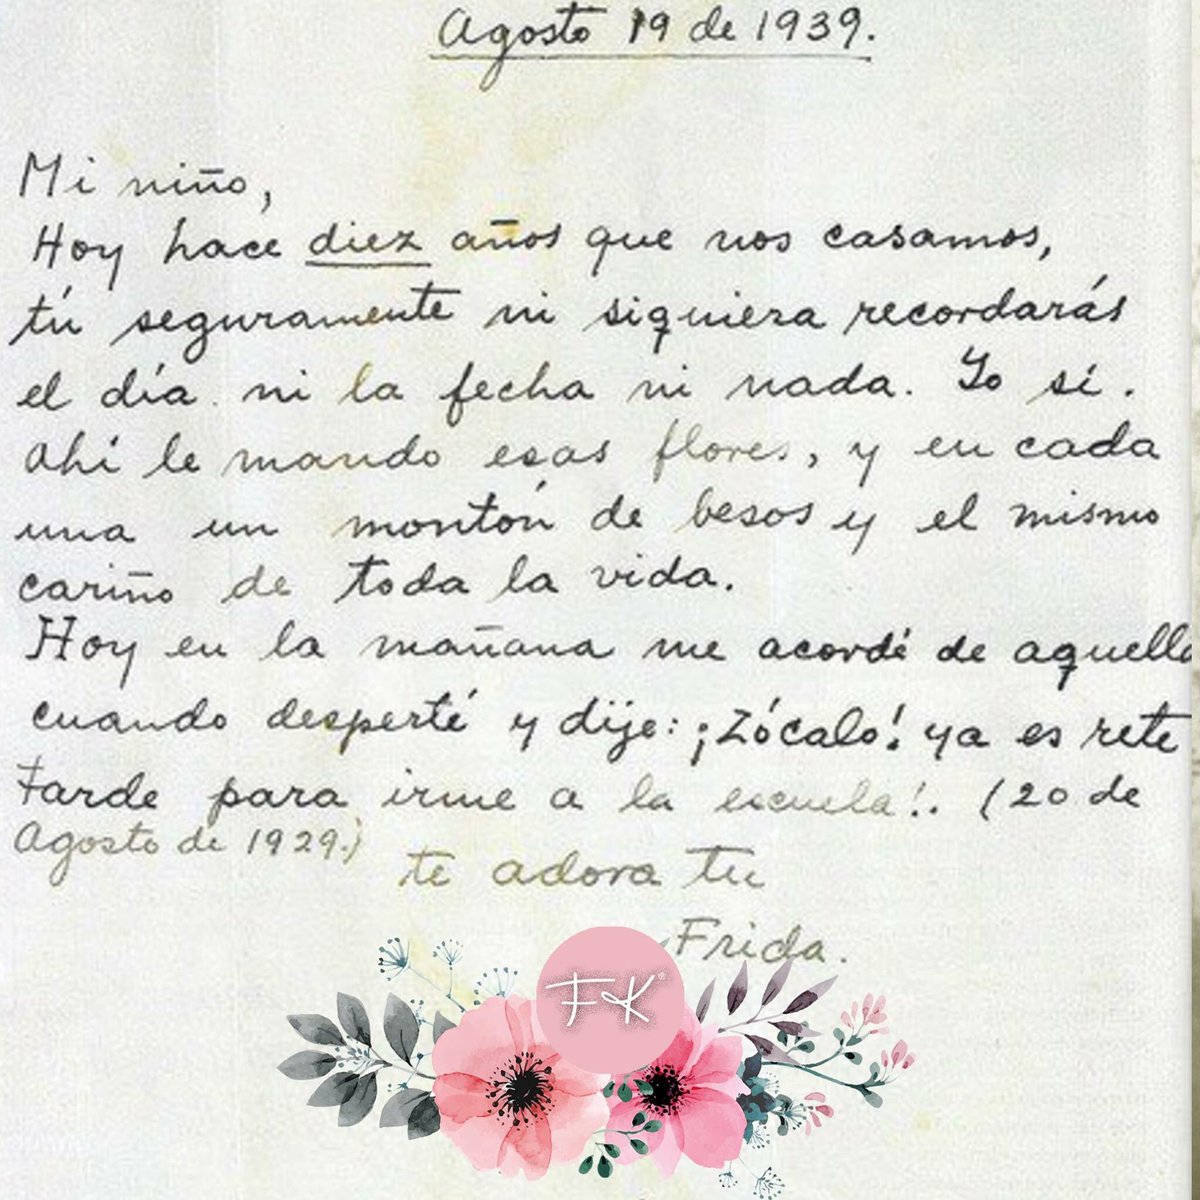 Agosto 19 de 1939.
Mi niño,
Hoy hace diez años que nos casamos,
tú seguramente ni siquiera recordarás
el día ni la fecha ni nada. Yo sí.
Ahí le mando esas flores, y en cada
una un montón de besos y el mismo
cariño de toda la vida.
Hoy en la mañana me acordé de aquello
cuando desperté y dije: ¡Zócalo! ya es rete
tarde para irme a la escuela!. (20 de
Agosto de 1929.)
te adora tu
Frida.
FK®